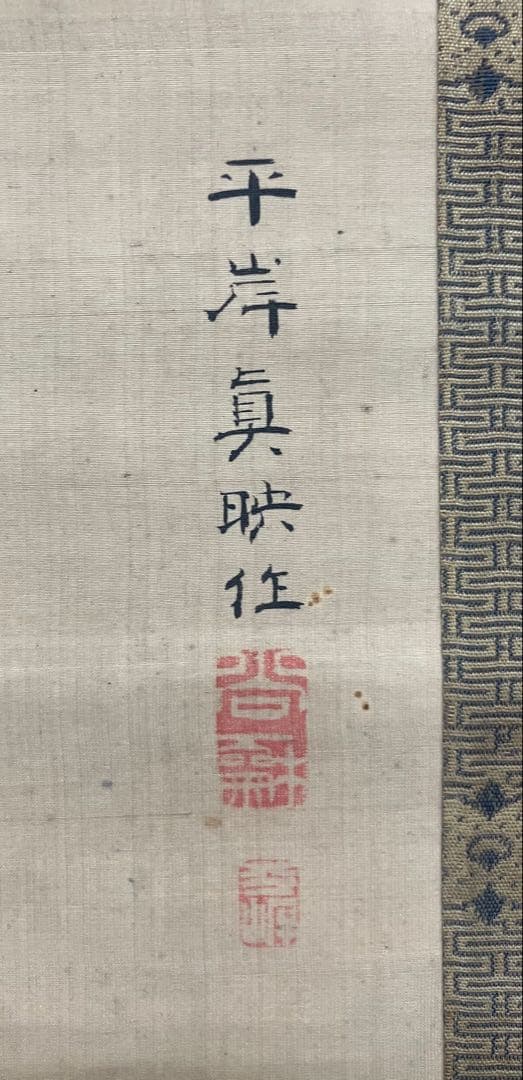 平岸眞映作